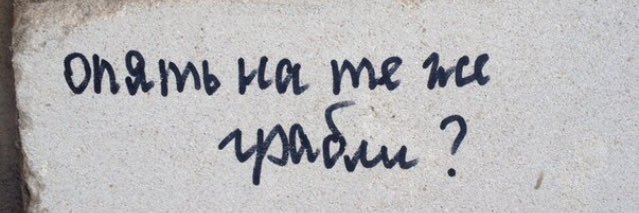 опять на те же
грабли?